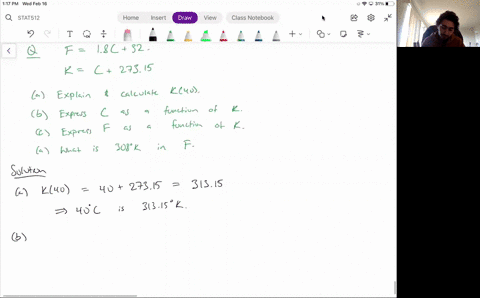 1:17 PM Wed Feb 16
31%
STAT512
Home Insert Draw View Class Notebook
Q F = 1.8C + 32.
K = C + 273.15
(a) Explain & calculate K(40).
(b) Express C as a function of K.
(c) Express F as a function of K.
(a) What is 308°K in F.
Solution
(a) K(40) = 40 + 273.15 = 313.15
⇒ 40°C is 313.15°K.
(b)